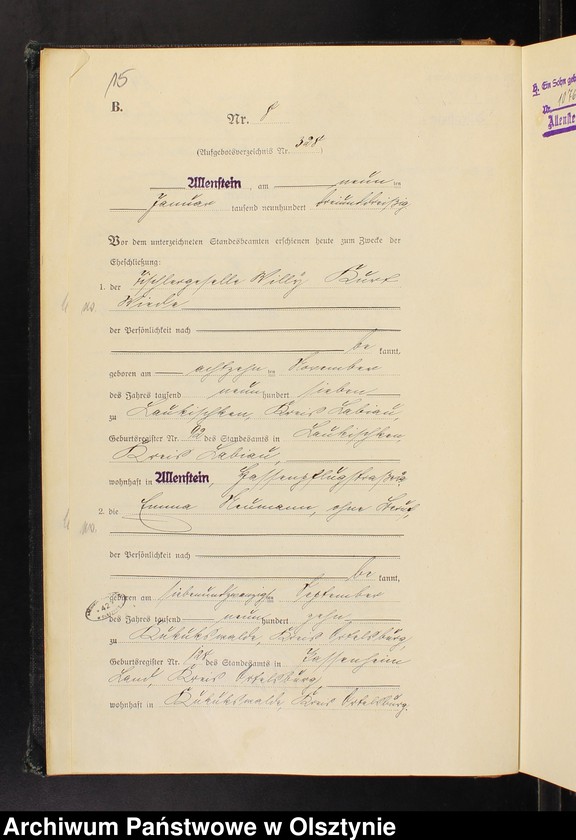 15
B.
Nr. 8
(Aufgebotsverzeichnis Nr. 328)
Allenstein, am neun ten
Januar tausend neunhundert dreiunddreißig
Vor dem unterzeichneten Standesbeamten erschienen heute zum Zwecke der
Eheschließung:
1. der Tischlergeselle Willy Kurt
ev.
der Persönlichkeit nach
be kannt,
geboren am achtzehn ten November
des Jahres tausend neun hundert sieben
zu Laukischken, Kreis Labiau,
Geburtsregister Nr. 92 des Standesamts in Laukischken,
Kreis Labiau,
wohnhaft in Allenstein,
2. die Emma Neumann, ohne Beruf,
ev.
der Persönlichkeit nach
be kannt,
geboren am siebenundzwanzigsten September
des Jahres tausend neun hundert zehn
zu Kukukswalde, Kreis Ortelsburg,
Geburtsregister Nr. des Standesamts in Passenheim
Land, Kreis Ortelsburg,
wohnhaft in Kukukswalde, Kreis Ortelsburg.
B. Ein Sohn
Nr.
Allenste
Archiwum Państwowe w Olsztynie